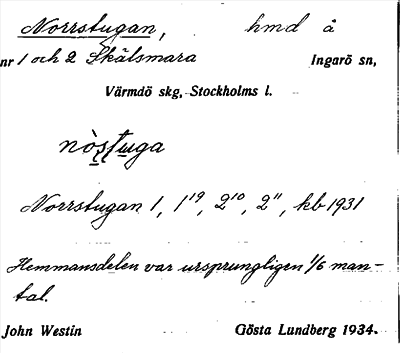 Norrstugan, hmd å
nr 1 och 2 Skälsmara Ingarö sn,
Värmdö skg, Stockholms l.
nòs̨t̨uga
Norrstugan 1, 1¹⁹, 2¹⁰, 2¹¹, kb 1931
Hemmansdelen var ursprungligen 1/6 man-
tal.
John Westin Gösta Lundberg 1934.